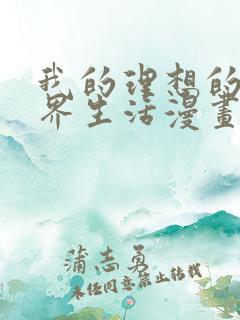 我的理想的
界生活漫畫
蒲志勇
未任同意禁止转载